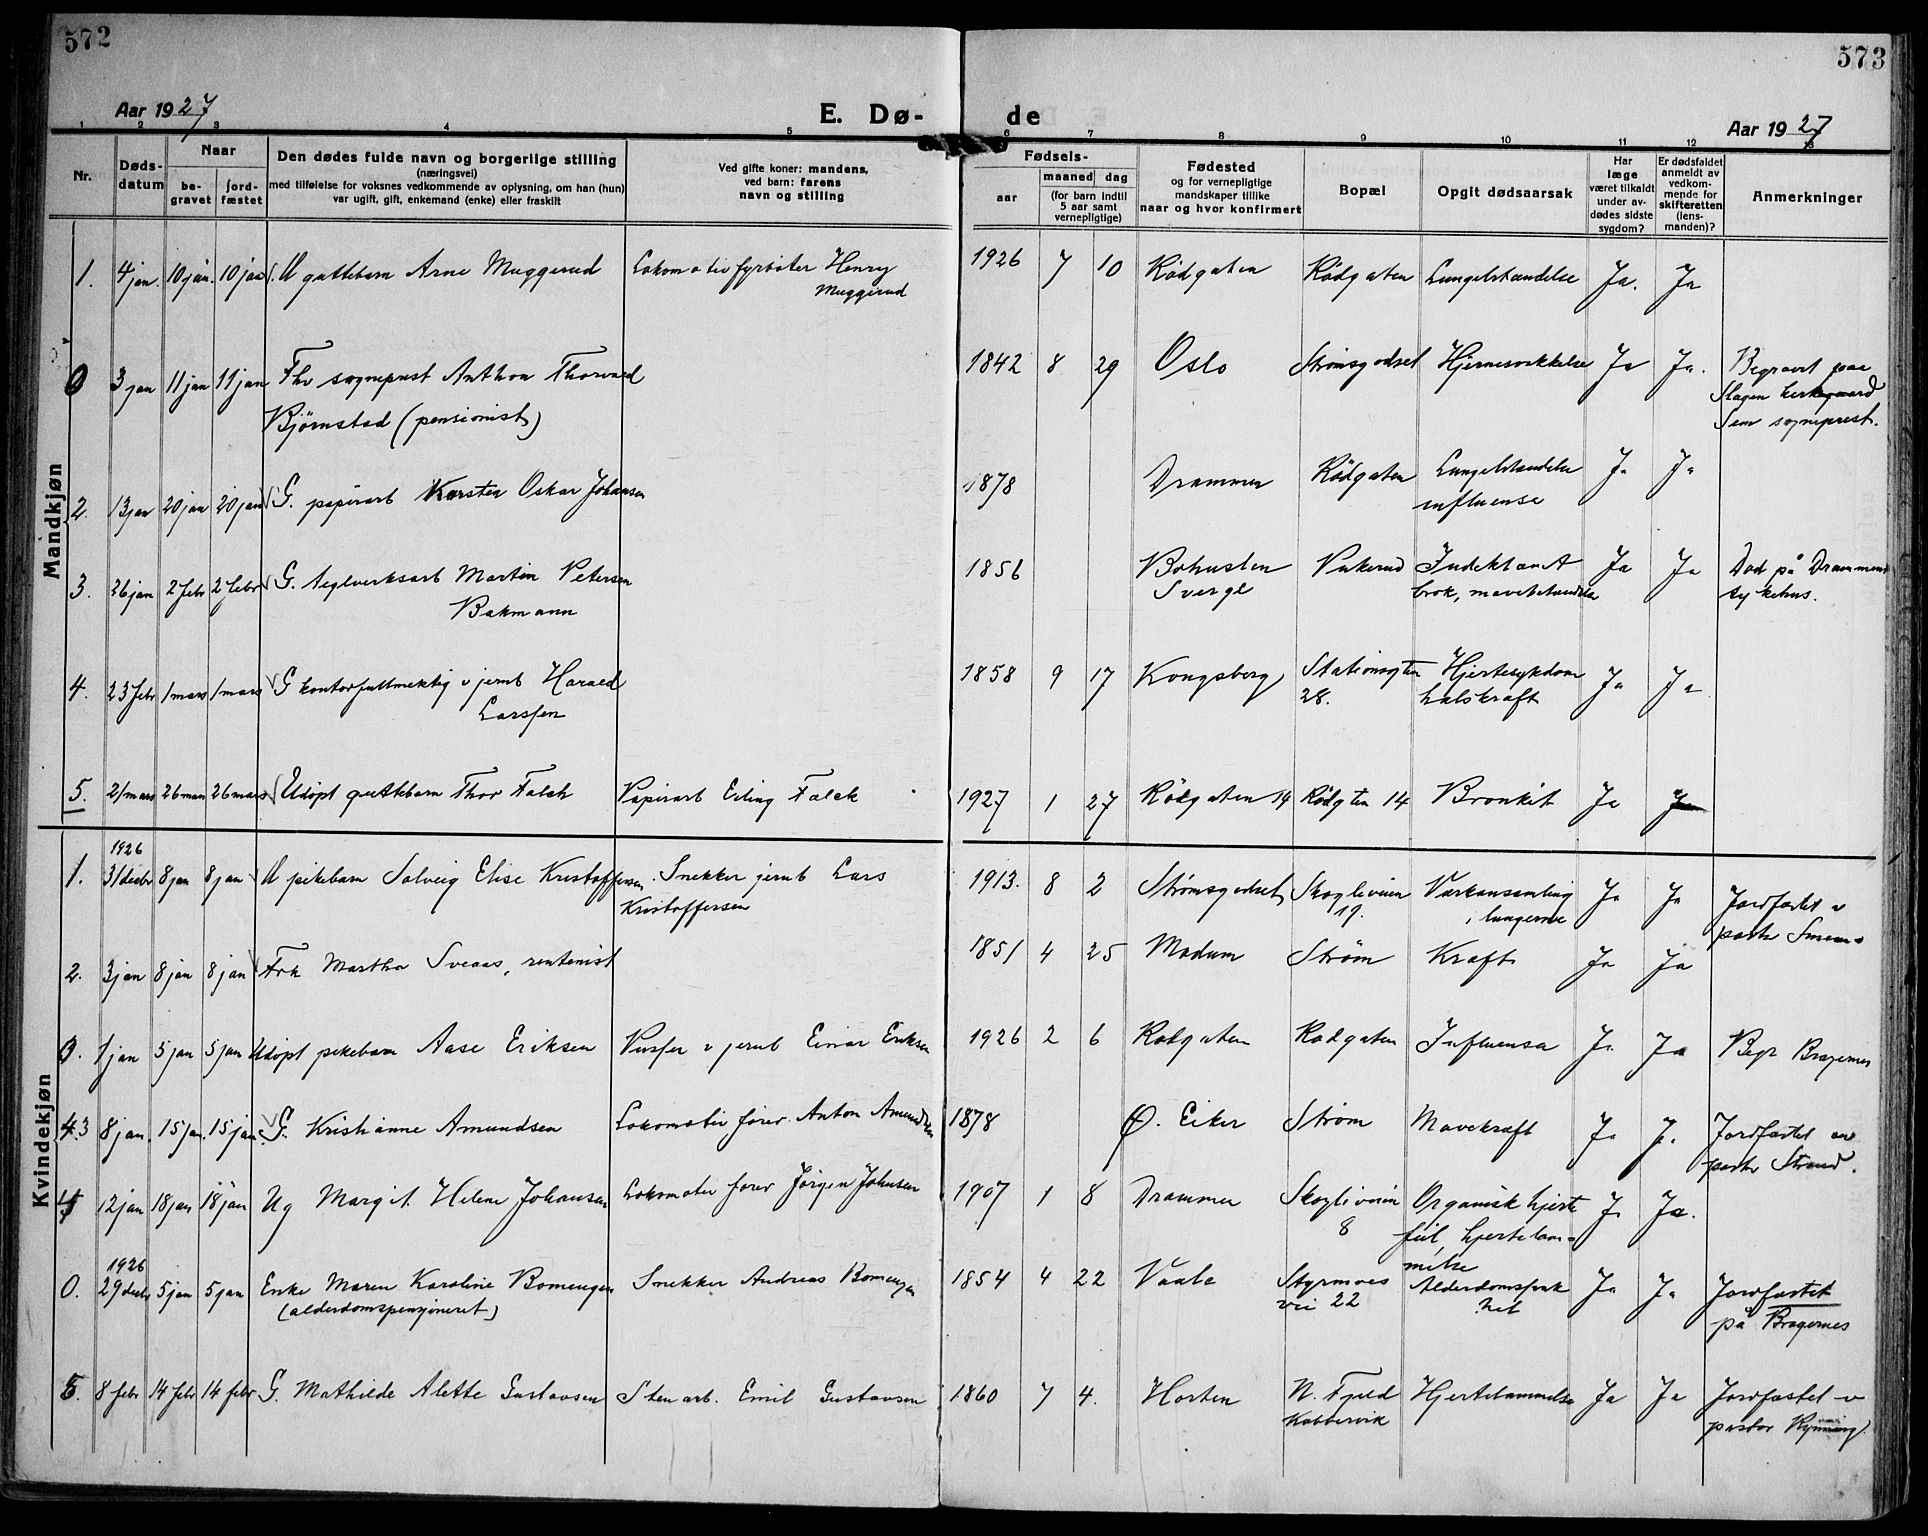 572
573
Aar 1927
E. Dø-
de
Aar 1927
1 2 3 4 5 6 7 8 9 10 11 12 13
Nr.
Døds-
datum
Naar
be-
gravet
jord-
fæstet
Den dødes fulde navn og borgerlige stilling
(næringsvei)
med tilføielse for voksnes vedkommende av oplysning, om han (hun)
var ugift, gift, enkemand (enke) eller fraskilt
Ved gifte koner: mandens,
ved barn: farens
navn og stilling
Fødsels-
aar
maaned dag
(for barn indtil
5 aar samt
vernepligtige)
Fødested
og for vernepligtige
mandskaper tillike
naar og hvor konfirmert
Bopæl
Opgit dødsaarsak
Har
læge
været tilkaldt
under av-
dødes sidste
sygdom?
Er dødsfaldet
anmeldt av
vedkom-
mende for
skifteretten
(lens-
manden)?
Anmerkninger
Mandkjøn
1. 4 jan. 10 jan. 10 jan U guttebarn Arne Muggerud Lokomotivfyrbøter Henry 1926 7 10 Rødgaten Rødgaten Lungebetændelse Ja. Ja
Muggerud
0 3 jan 11 jan 11 jan Fhv sogneprest Anthon Thorvald 1842 8 29 Oslo Strømsgodset Hjernesvekkelse Ja Ja. Begravet paa
Bjørnstad (pensionist) Slagen kirkegaard
Sem sogneprest.
2. 13 jan 20 jan 20 jan G. papirarb Karsten Oskar Johansen 1878 Drammen Rødgaten Lungebetændelse Ja Ja
influensa
3. 26 jan 2 febr 2 febr G. teglverksarb Martin Petersen 1856 Bohuslen Indeklemt Ja Ja Død på Drammens
Bakmann Sverge brok, mavebetændelse sykehus.
4. 23 febr 1 mars 1 mars G kontorfullmektig v jernb Harald 1858 9 17 Kongsberg Stationsgten Hjertesykdom Ja Ja
Larssen 28. halskræft
5. 21 mars 26 mars 26 mars Udøpt guttebarn Thor Falck Papirarb Erling Falck 1927 1 27 Rødgaten 14 Rødgten 14 Bronkit Ja Ja
Kvindekjøn
1926
1. 31 decbr 8 jan 8 jan U pikebarn Solveig Elise Kristoffersen Snekker jernb Lars 1913. 8 2 Strømsgodset Skogliveien Værkansamling Ja Ja Jordfæstet v
Kristoffersen 19. i lungerne pastor
2. 3 jan 8 jan 8 jan Frk Martha Sveaas, rentenist 1851 4 25 Modum Strøm Kræft Ja Ja
0. 1 jan 5 jan 5 jan Udøpt pikebarn Aase Eriksen Pusser v jernb Einar Eriksen 1926 2 6 Rødgaten Rødgaten Influensa Ja Ja Begr Bragernes
4.3 8 jan. 15 jan. 15 jan. G. Kristianne Amundsen Lokomotivfører Anton Amundsen 1878 Ø. Eiker Strøm Mavekræft Ja Ja Jordfæstet av
pastor Strand.
4 12 jan 18 jan 18 jan Ug Margit Helene Johansen Lokomotivfører Jørgen Johnsen 1907 1 8 Drammen Skogliveien Organisk hjerte Ja Ja.
8 feil, hjertelam-
melse
1926
0. 29 decbr 5 jan 5 jan Enke Maren Karoline Bomengen Snekker Andreas Bomengen 1854 4 22 Vaale Styrmoes Alderdomssvak Ja Ja Jordfæstet
(alderdomspensjoneret) vei 22 het på Bragernes
5. 8 febr 14 febr 14 febr G. Mathilde Alette Gustavsen Stenarb. Emil Gustavsen 1860 7 4. Horten N. Fjeld Hjertelammelse Ja Ja Jordfæstet v
Kobbervik pastor Rynning